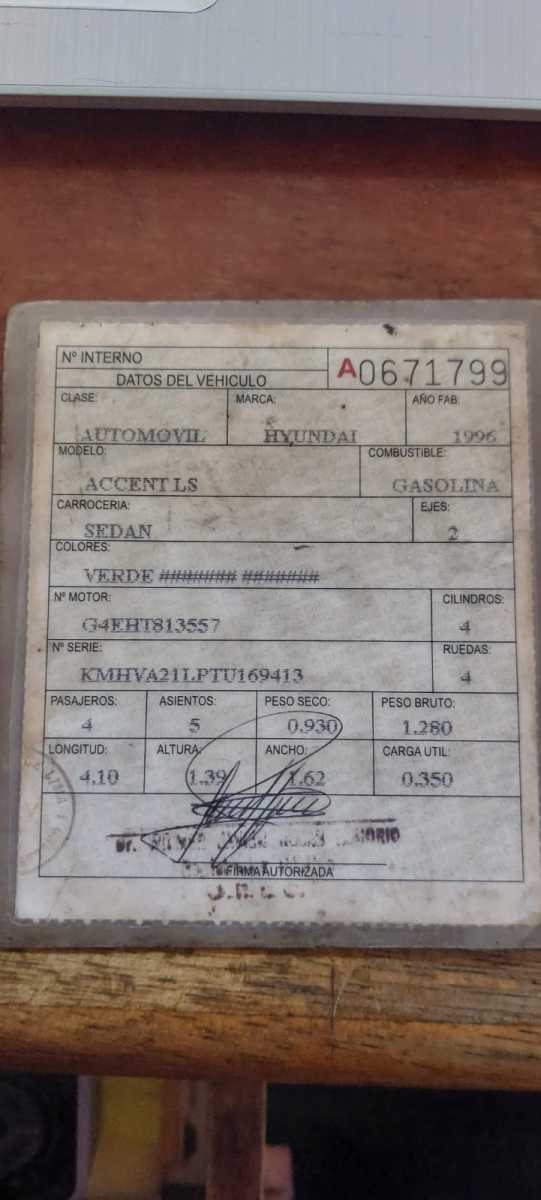 Nº INTERNO
A0671799
DATOS DEL VEHICULO
CLASE: MARCA: AÑO FAB:
AUTOMOVIL HYUNDAI 1996
MODELO: COMBUSTIBLE:
ACCENT LS GASOLINA
CARROCERIA: EJES:
SEDAN 2
COLORES:
VERDE ####### #######
Nº MOTOR: CILINDROS:
G4EHT813557 4
Nº SERIE: RUEDAS:
KMHVA21LPTU169413 4
PASAJEROS: ASIENTOS: PESO SECO: PESO BRUTO:
4 5 0.930 1.280
LONGITUD: ALTURA: ANCHO: CARGA UTIL:
4.10 1.39 1.62 0.350
Dr.
FIRMA AUTORIZADA